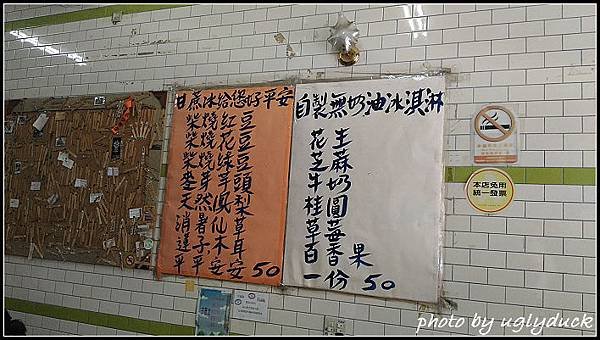 甘蔗冰給您好平安
柴燒紅豆
柴燒花豆
柴燒綠豆
芋頭
天然鳳梨
消暑仙草
蓮子木耳
平平安安 50
自製無奶油冰淇淋
花生
芝麻
牛奶
桂圓
草莓
百香果
一份 50
本店免用
統一發票
photo by uglyduck